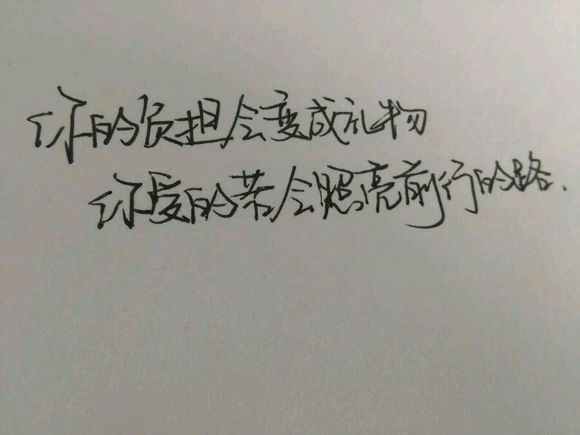 你的负担会变成礼物
你受的苦会照亮前行的路.